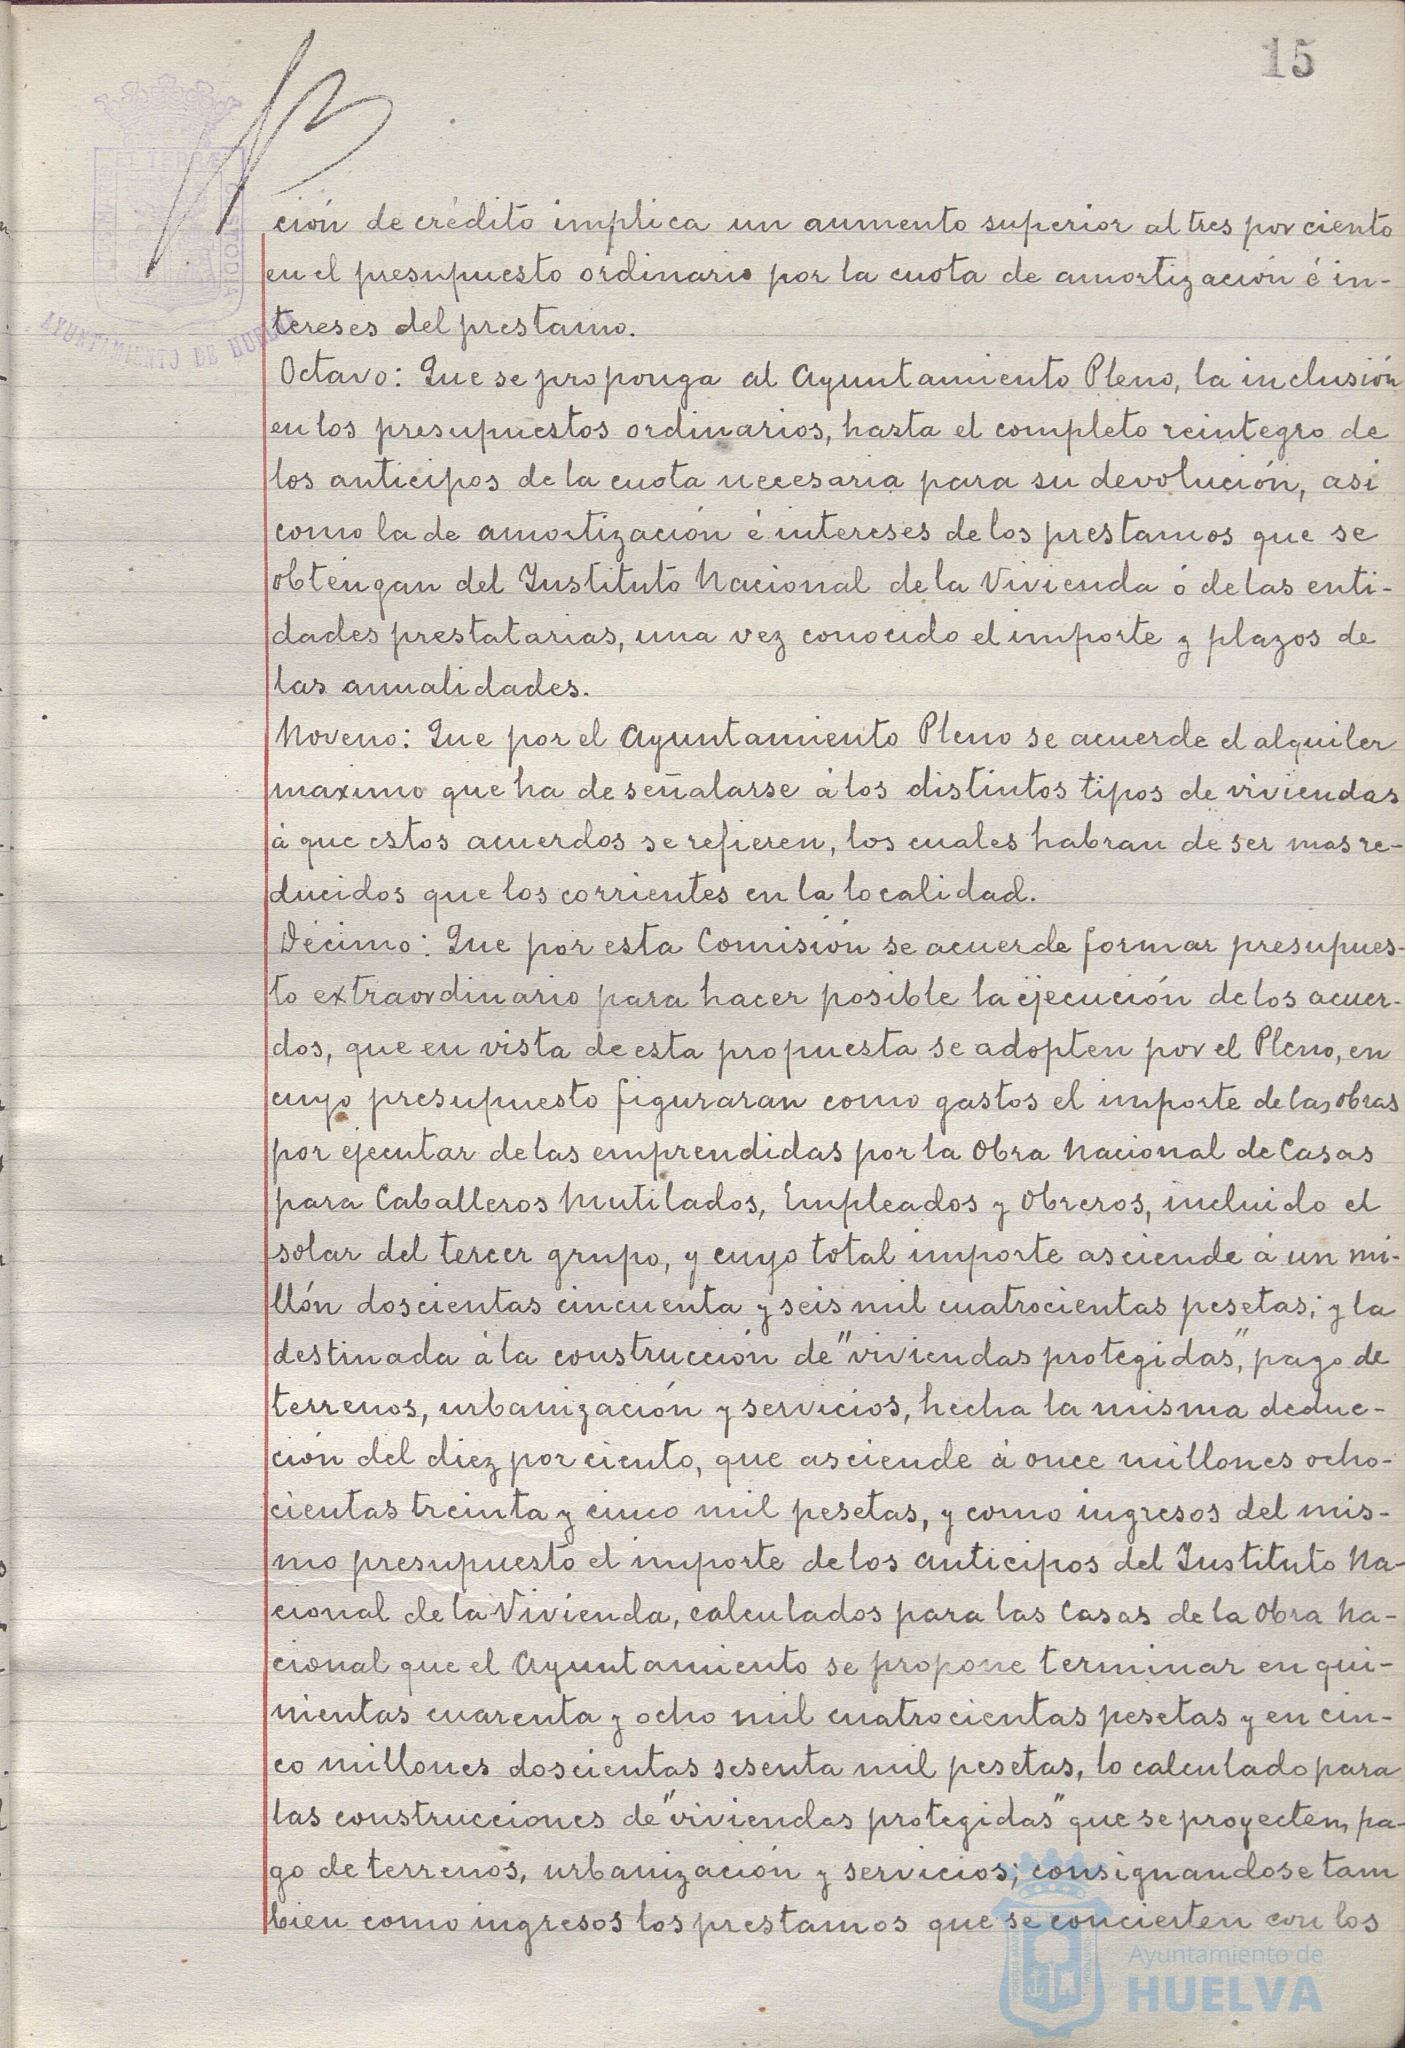 15
ET TERRÆ
CUSTODIA
AYUNTAMIENTO DE HUELVA
ción de crédito implica un aumento superior al tres por ciento
en el presupuesto ordinario por la cuota de amortización é in-
tereses del prestamo.
Octavo: Que se proponga al Ayuntamiento Pleno, la inclusión
en los presupuestos ordinarios, hasta el completo reintegro de
los anticipos de la cuota necesaria para su devolución, asi
como la de amortización é intereses de los prestamos que se
obtengan del Instituto Nacional de la Vivienda ó de las enti-
dades prestatarias, una vez conocido el importe y plazos de
las anualidades.
Noveno: Que por el Ayuntamiento Pleno se acuerde el alquiler
maximo que ha de señalarse á los distintos tipos de viviendas
á que estos acuerdos se refieren, los cuales habran de ser mas re-
ducidos que los corrientes en la localidad.
Décimo: Que por esta Comisión se acuerde formar presupues-
to extraordinario para hacer posible la ejecución de los acuer-
dos, que en vista de esta propuesta se adopten por el Pleno, en
cuyo presupuesto figuraran como gastos el importe de las obras
por ejecutar de las emprendidas por la Obra Nacional de Casas
para Caballeros Mutilados, Empleados y Obreros, incluido el
solar del tercer grupo, y cuyo total importe asciende á un mi-
llón doscientas cincuenta y seis mil cuatrocientas pesetas; y la
destinada á la construcción de "viviendas protegidas", pago de
terrenos, urbanización y servicios, hecha la misma deduc-
ción del diez por ciento, que asciende á once millones ocho-
cientas treinta y cinco mil pesetas, y como ingresos del mis-
mo presupuesto el importe de los anticipos del Instituto Na-
cional de la Vivienda, calculados para las Casas de la Obra Na-
cional que el Ayuntamiento se propone terminar en qui-
nientas cuarenta y ocho mil cuatrocientas pesetas y en cin-
co millones doscientas sesenta mil pesetas, lo calculado para
las construcciones de "viviendas protegidas" que se proyecten, pa-
go de terrenos, urbanización y servicios; consignandose tam
bien como ingresos los prestamos que se concierten con los
Ayuntamiento de
HUELVA